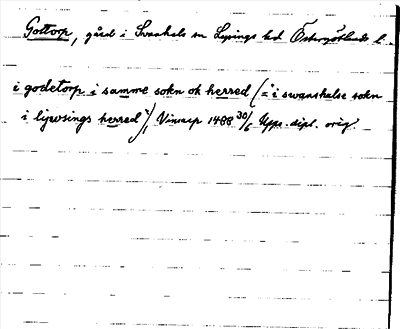 Gottorp, gård i Svanhals sn Lysings hd Östergötlands l.
i godetorp i samme sokn ok herred (= "i swanshalse sokn
i lywsings herred"), Vinnarp 1488 30/6 Upps. dipl. orig.